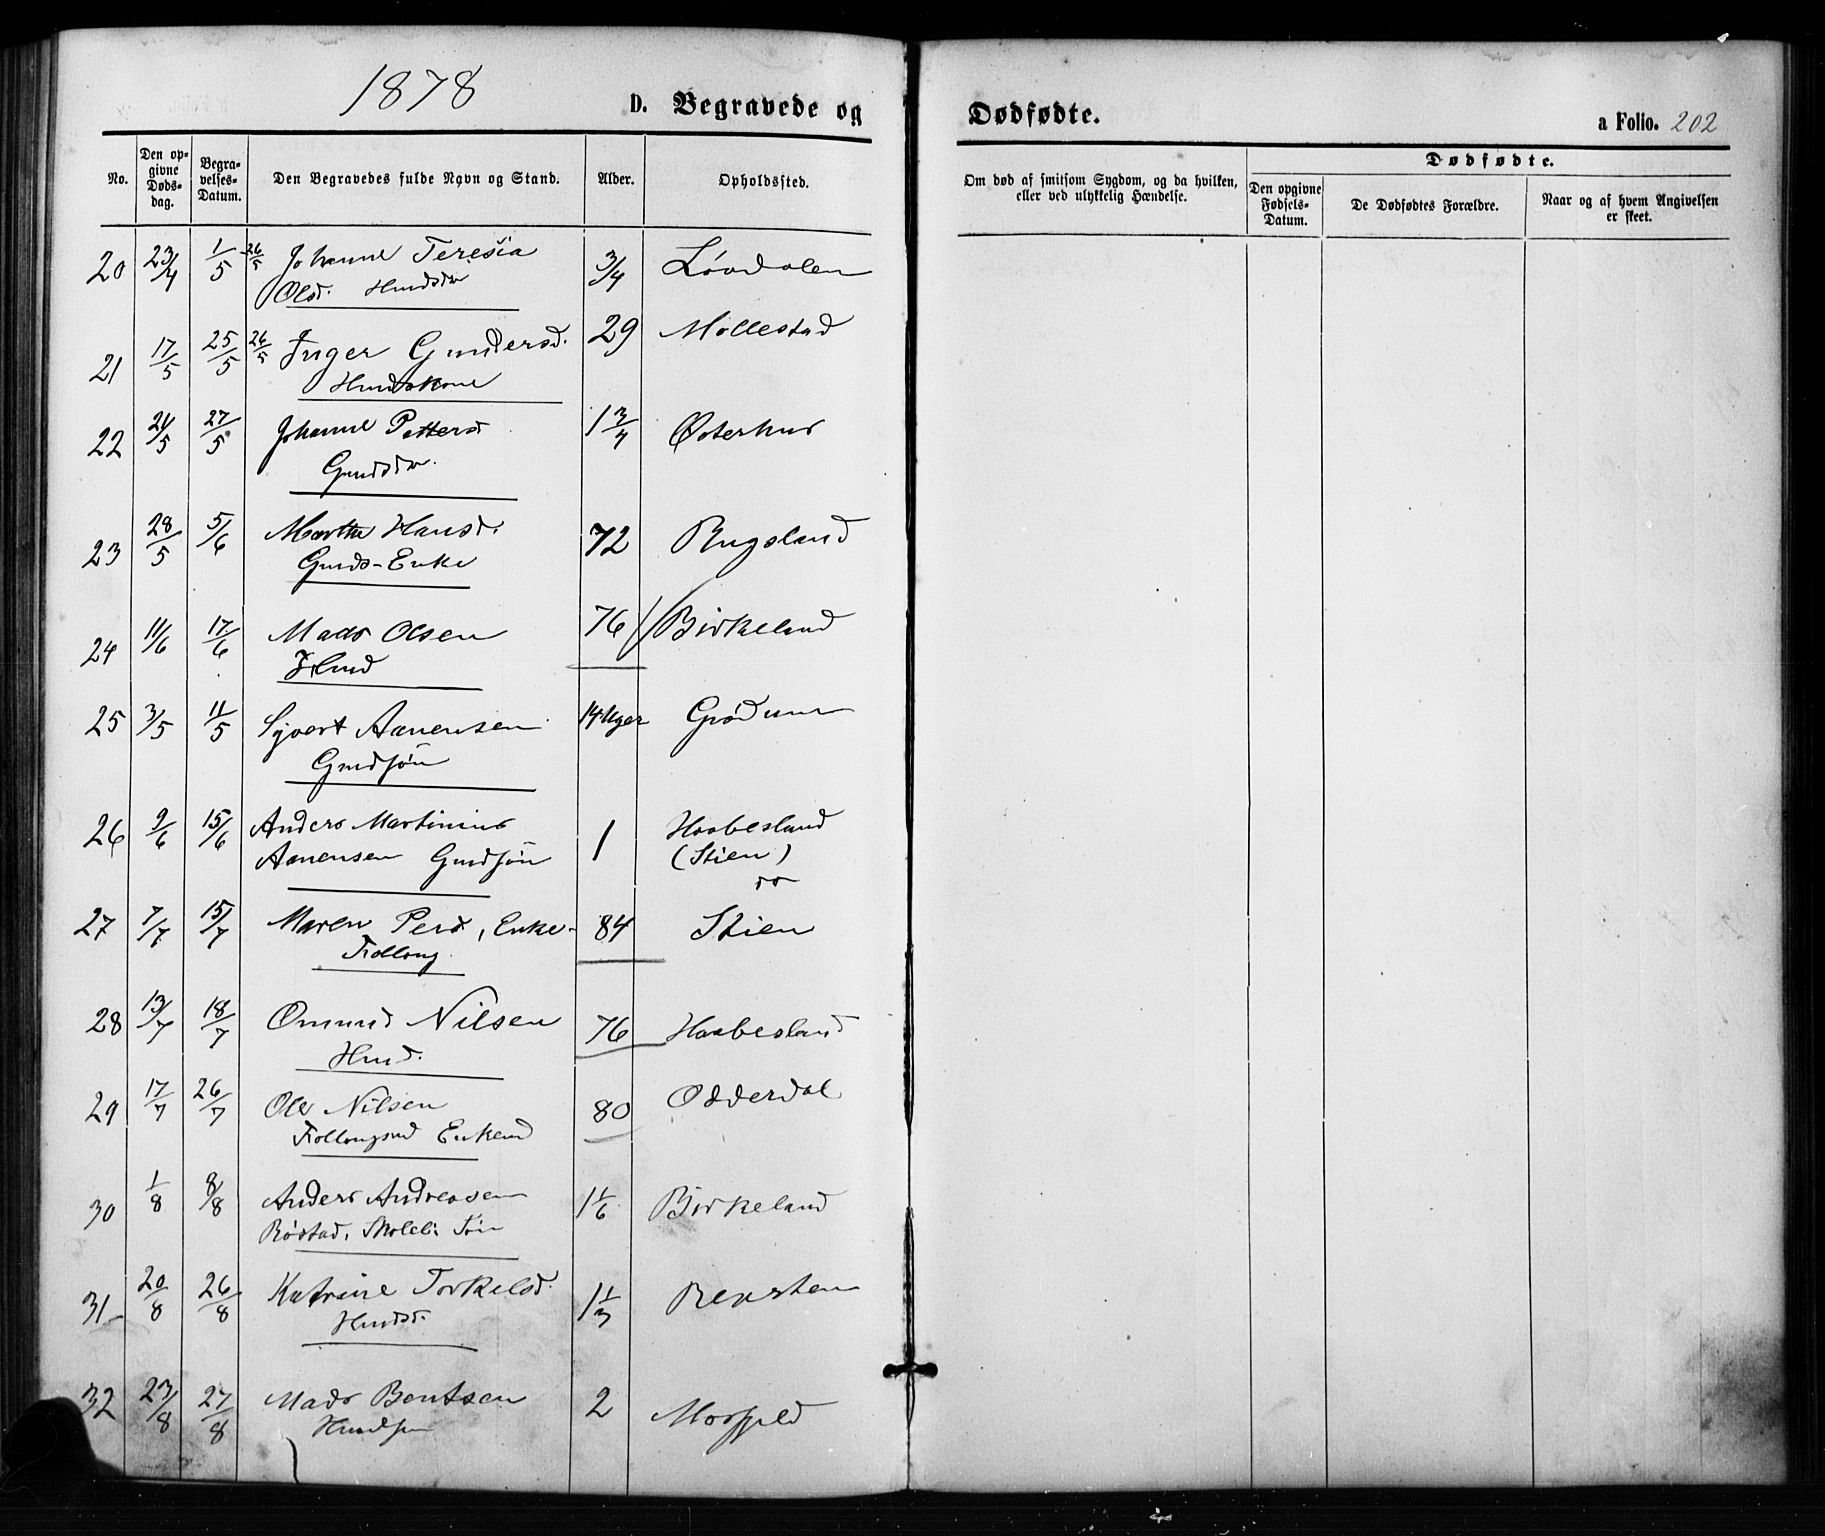 1878
D. Begravede og Dødfødte.
a Folio. 202
No. Den opgivne Dødsdag. Begravelses-Datum. Den Begravedes fulde Navn og Stand. Alder. Opholdssted.
Om død af smitsom Sygdom, og da hvilken, eller ved ulykkelig Hændelse.
Dødfødte.
Den opgivne Fødsels-Datum. De Dødfødtes Forældre. Naar og af hvem Angivelsen er skeet.
20 23/4 1/5 26/5 Johanne Teresia 3/4 Løvdalen
Olsd. Hmdsdr
21 17/5 25/5 26/5 Inger Gundersd. 29 Møllestad
Hmdskone
22 21/5 27/5 Johanne Pettersd 1 3/4 Østerhus
Gmdsdr.
23 28/5 5/6 Marthe Hansd. 72 Rugsland
Gmds-Enke
24 11/6 17/6 Mads Olsen 76 Birkeland
Hmd
25 3/5 11/5 Syvert Aanensen 14 Uger Grødum
Gmdsøn
26 9/6 15/6 Anders Martinius 1 Haabesland
Aanensen Gmdsøn (Stien)
do
27 7/7 15/7 Maren Persd, Enke 84 Stien
Follaug.
28 13/7 18/7 Omund Nilsen 76 Haabesland
Hmd.
29 17/7 26/7 Ole Nilsen 80 Odderdal
Enkemd
30 1/8 8/8 Anders Andreasen 1 1/6 Birkeland
Røstad, Skolel: Søn
31 20/8 26/8 Katrine Torkelsd. 1 1/3
Hmdsd.
32 23/8 27/8 Mads Bentsen 2
Hmdsøn